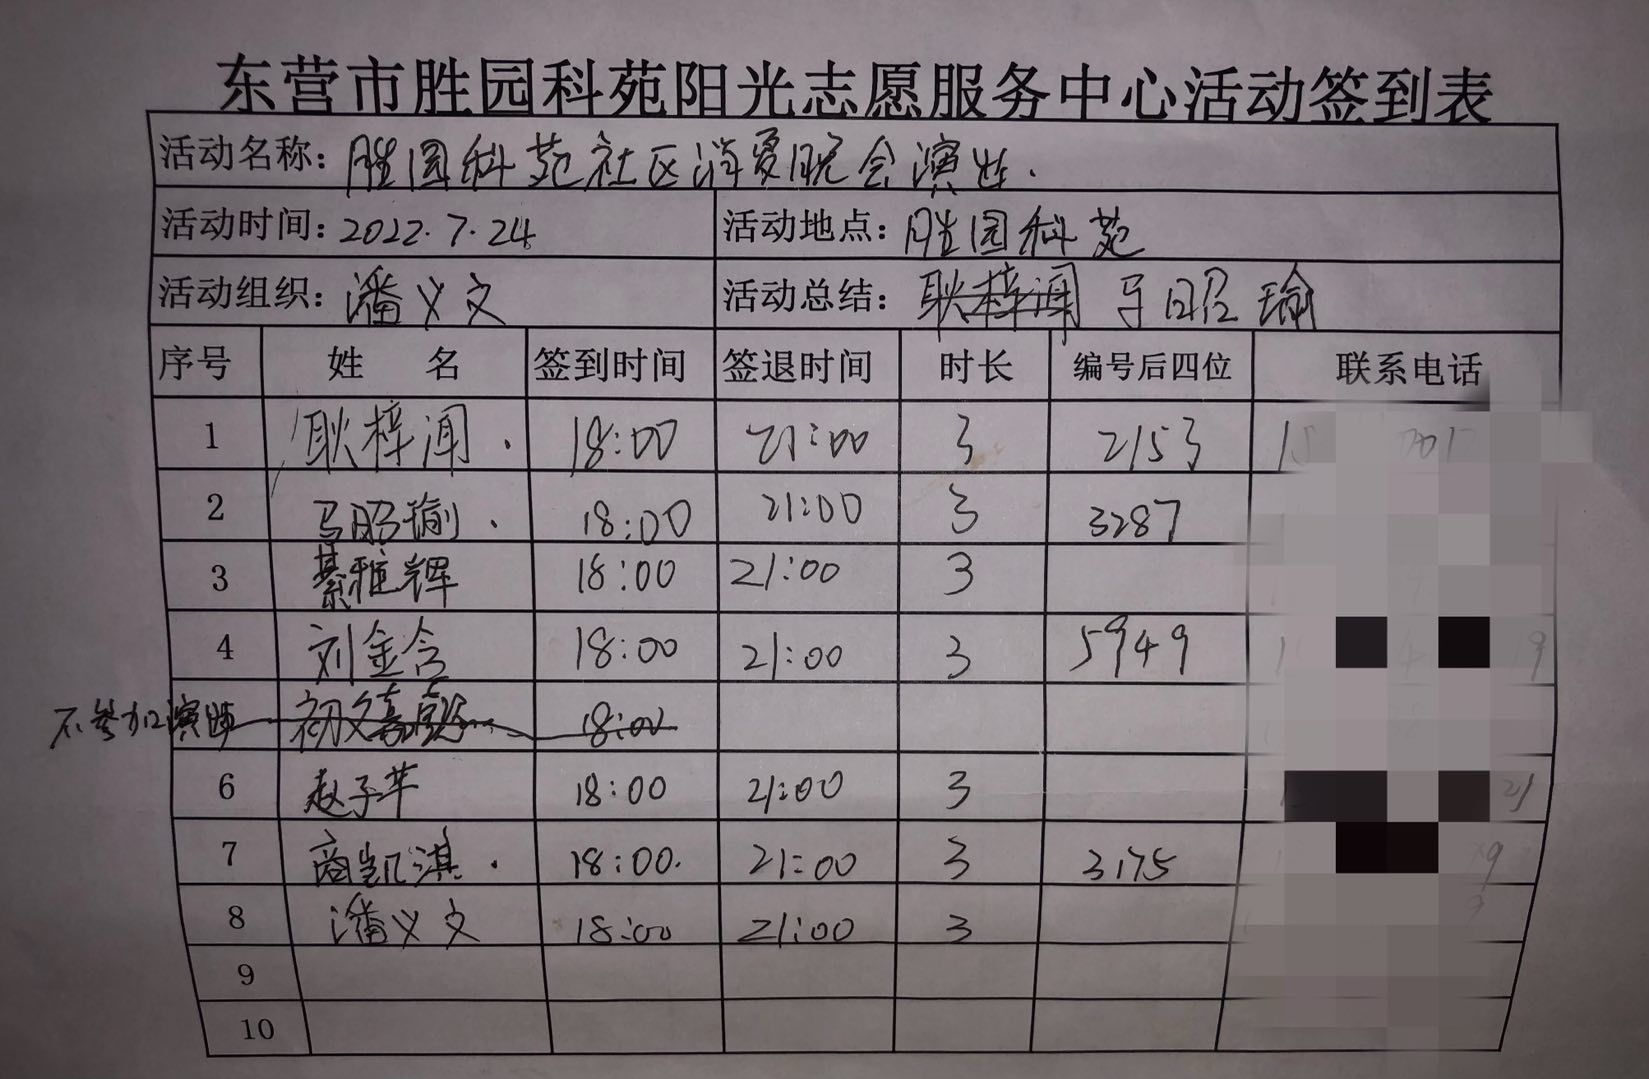 东营市胜园科苑阳光志愿服务中心活动签到表
活动名称：胜园科苑社区消夏晚会演出.
活动时间：2022.7.24 活动地点：胜园科苑
活动组织：潘义文 活动总结：耿梓闻 马昭瑜
序号 姓 名 签到时间 签退时间 时长 编号后四位 联系电话
1 耿梓闻. 18:00 21:00 3 2153
2 马昭瑜. 18:00 21:00 3 3287
3 綦雅辉 18:00 21:00 3
4 刘金含 18:00 21:00 3 5949
不参加演出 初文嘉 18:00
6 赵子苹 18:00 21:00 3
7 商凯淇. 18:00. 21:00 3 3175
8 潘义文 18:00 21:00 3
9
10